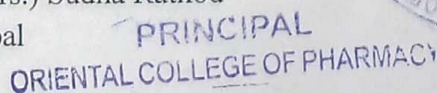 pal
PRINCIPAL
ORIENTAL COLLEGE OF PHARMACY